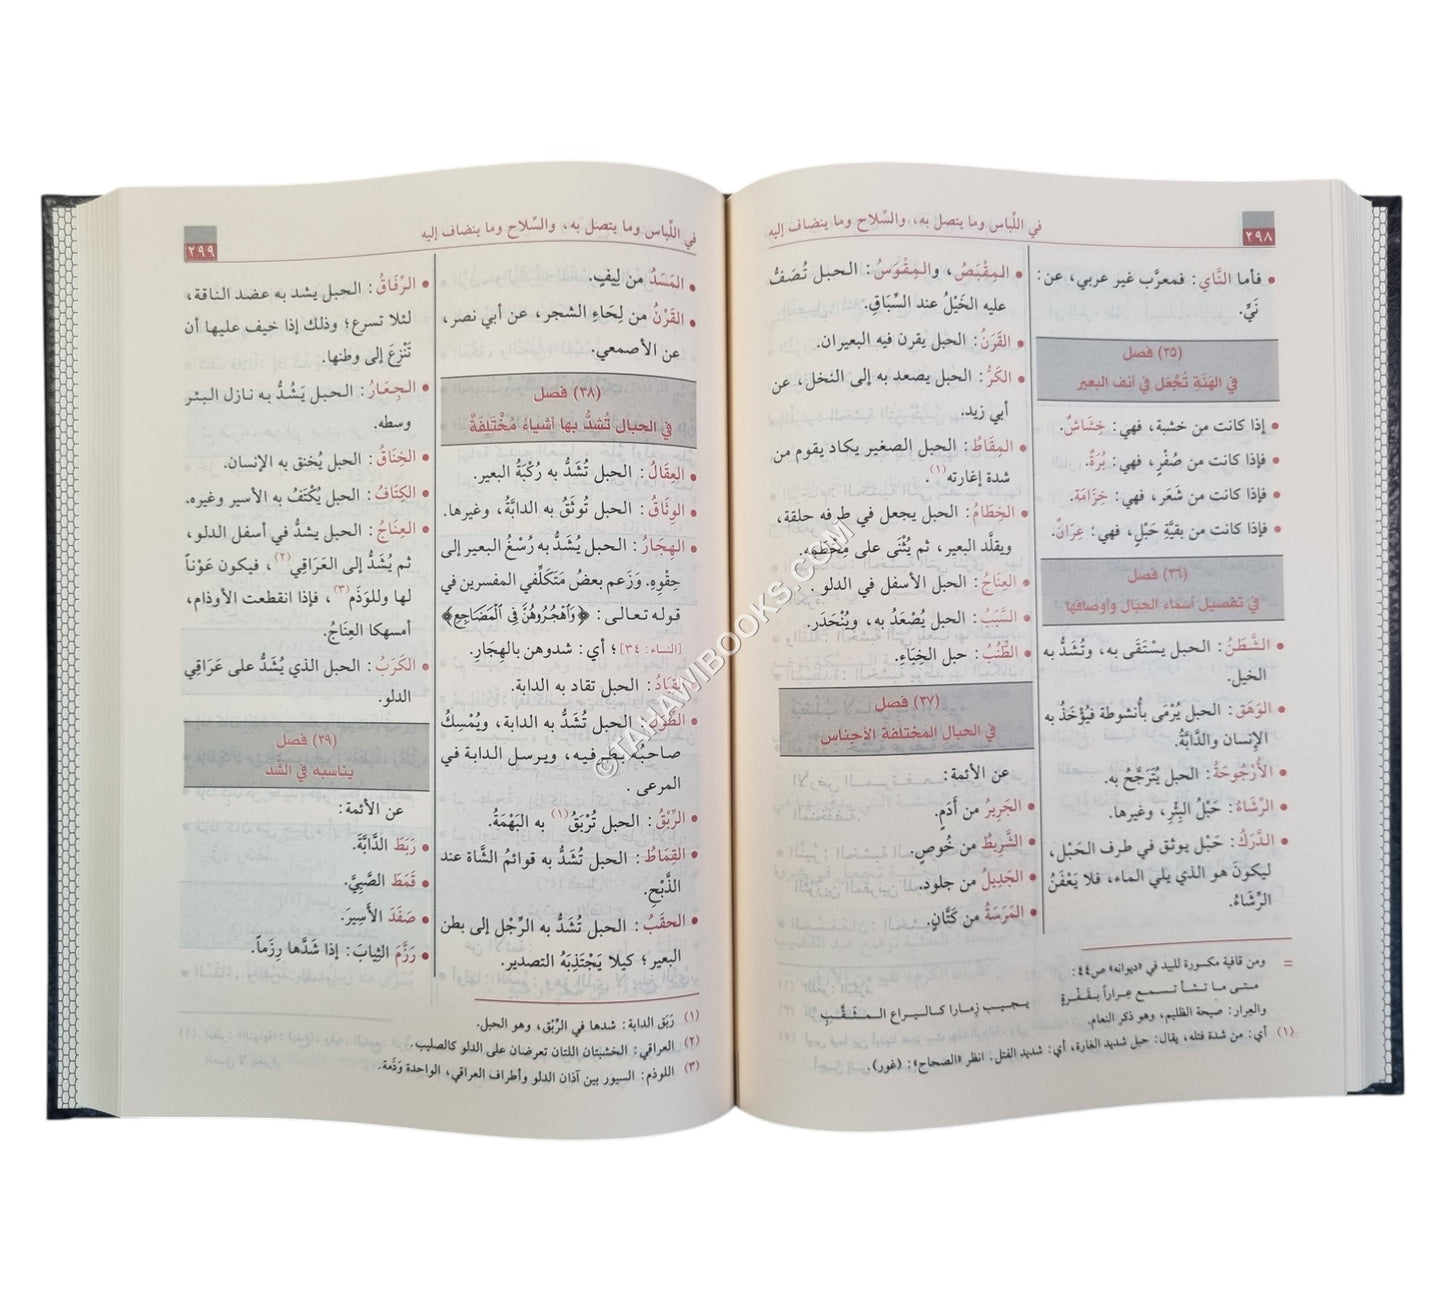 ٢٩٨
في اللِّباس وما يتصل به، والسِّلاح وما ينضاف إليه
• فأما النَّاي: فمعرَّب غير عربي، عن:
نَيِّ.
(٣٥) فصل
في الهَنَةِ تُجْعَل في أنف البعير
• إذا كانت من خشبة، فهي: خِشَاشٌ.
• فإذا كانت من صُفْرٍ، فهي: بُرَةٌ.
• فإذا كانت من شَعَر، فهي: خِزَامَة.
• فإذا كانت من بقيَّةِ حَبْلٍ، فهي: عِرَانٌ.
(٣٦) فصل
في تفصيل أسماء الحِبَال وأوصافها
• الشَّطَنُ: الحبل يسْتَقَى به، وتُشَدُّ به
الخيل.
• الوَهَق: الحبل يُرْمَى بأُنشوطة فيُؤْخَذُ به
الإنسان والدَّابَّةُ.
• الأُرْجُوحَةُ: الحبل يُتَرَجَّحُ به.
• الرِّشَاءُ: حَبْلُ البِئْرِ، وغيرها.
• الدَّرَكُ: حَبْل يوثق في طرف الحَبْل،
ليكونَ هو الذي يلي الماء، فلا يَعْفَنُ
الرِّشَاءُ.
• المِقْبَصُ، والمِقْوَسُ: الحبل تُصَفُّ
عليه الخَيْلُ عند السِّبَاقِ.
• القَرَنُ: الحبل يقرن فيه البعيران.
• الكَرُّ: الحبل يصعد به إلى النخل، عن
أبي زيد.
• المِقَاطُ: الحبل الصغير يكاد يقوم من
شدة إغارته(١).
• الخِطَامُ: الحبل يجعل في طرفه حلقة،
ويقلَّد البعير، ثم يُثْنَى على مِخْطَمِه.
• العِنَاجُ: الحبل الأسفل في الدلو.
• السَّبَبُ: الحبل يُصْعَدُ به، ويُنْحَدَر.
• الطُّنُبُ: حبل الخِبَاءِ.
(٣٧) فصل
في الحبال المختلفة الأجناس
عن الأئمة:
• الجَرِيرُ من أَدَمٍ.
• الشَّرِيطُ من خُوصٍ.
• الجَدِيلُ من جلود.
• المَرَسَةُ من كَتَّانٍ.
= ومن قافية مكسورة للبيد في «ديوانه» ص٤٤:
متى ما تشأ تسمع عِراراً بقَفْرةٍ يجيب زمارا كاليراع المثقَّبِ
والعِرار: صيحة الظليم، وهو ذكر النعام.
(١) أي: من شدة فتله، يقال: حبل شديد الغارة، أي: شديد الفتل. انظر «الصحاح»: (غور).
في اللِّباس وما يتصل به، والسِّلاح وما ينضاف إليه
٢٩٩
• المَسَدُ من لِيفٍ.
• القَرْنُ من لِحَاءِ الشجر، عن أبي نصر،
عن الأصمعي.
(٣٨) فصل
في الحبال تُشدُّ بها أشياءُ مُخْتلِفَةٌ
• العِقَالُ: الحبل تُشَدُّ به رُكْبَةُ البعير.
• الوِثَاقُ: الحبل تُوثَقُ به الدابَّةُ، وغيرها.
• الهِجَارُ: الحبل يُشَدُّ به رُسْغُ البعير إلى
حِقْوِهِ. وَزَعم بعضُ مَتَكَلِّفي المفسرين في
قوله تعالى: ﴿وَاهْجُرُوهُنَّ فِي الْمَضَاجِعِ﴾
[النساء: ٣٤]؛ أي: شدوهن بالهِجَارِ.
القِيَادُ: الحبل تقاد به الدابة.
• الطِّوَلُ: الحبل تُشَدُّ به الدابة، ويُمْسِكُ
صاحبه بطرفيه، ويرسل الدابة في
المرعى.
• الرِّبْقُ: الحبل تُرْبَقُ(١) به البَهْمَةُ.
• القِمَاطُ: الحبل تُشَدُّ به قوائمُ الشَّاة عند
الذَّبْحِ.
• الحقَبُ: الحبل تُشَدُّ به الرِّجْل إلى بطن
البعير؛ كيلا يَجْتَذِبَهُ التصدير.
• الرِّفَاقُ: الحبل يشد به عضد الناقة،
لئلا تسرع؛ وذلك إذا خيف عليها أن
تَنْزِعَ إلى وطنها.
• الجِعَارُ: الحبل يَشُدُّ به نازل البئر
وسطه.
• الخِنَاقُ: الحبل يُخنق به الإنسان.
• الكِتَافُ: الحبل يُكْتَفُ به الأسير وغيره.
• العِنَاجُ: الحبل يشدُّ في أسفل الدلو،
ثم يُشَدُّ إلى العَرَاقِي(٢)، فيكون عَوْناً
لها وللوَذَم(٣)، فإذا انقطعت الأوذام،
أمسكها العِنَاجُ.
• الكَرَبُ: الحبل الذي يُشَدُّ على عَرَاقِي
الدلو.
(٣٩) فصل
يناسبه في الشَّد
عن الأئمة:
• رَبَطَ الدَّابَّةَ.
• قَمَطَ الصَّبِيَّ.
• صَفَدَ الأَسِيرَ.
• رَزَّمَ الثِيابَ: إذا شَدَّها رِزَماً.
(١) رَبَق الدابة: شدها في الرِّبْق، وهو الحبل.
(٢) العراقي: الخشبتان اللتان تعرضان على الدلو كالصليب.
(٣) اللوذم: السيور بين آذان الدلو وأطراف العراقي، الواحدة وَذَمة.
© TAHAWIBOOKS.COM